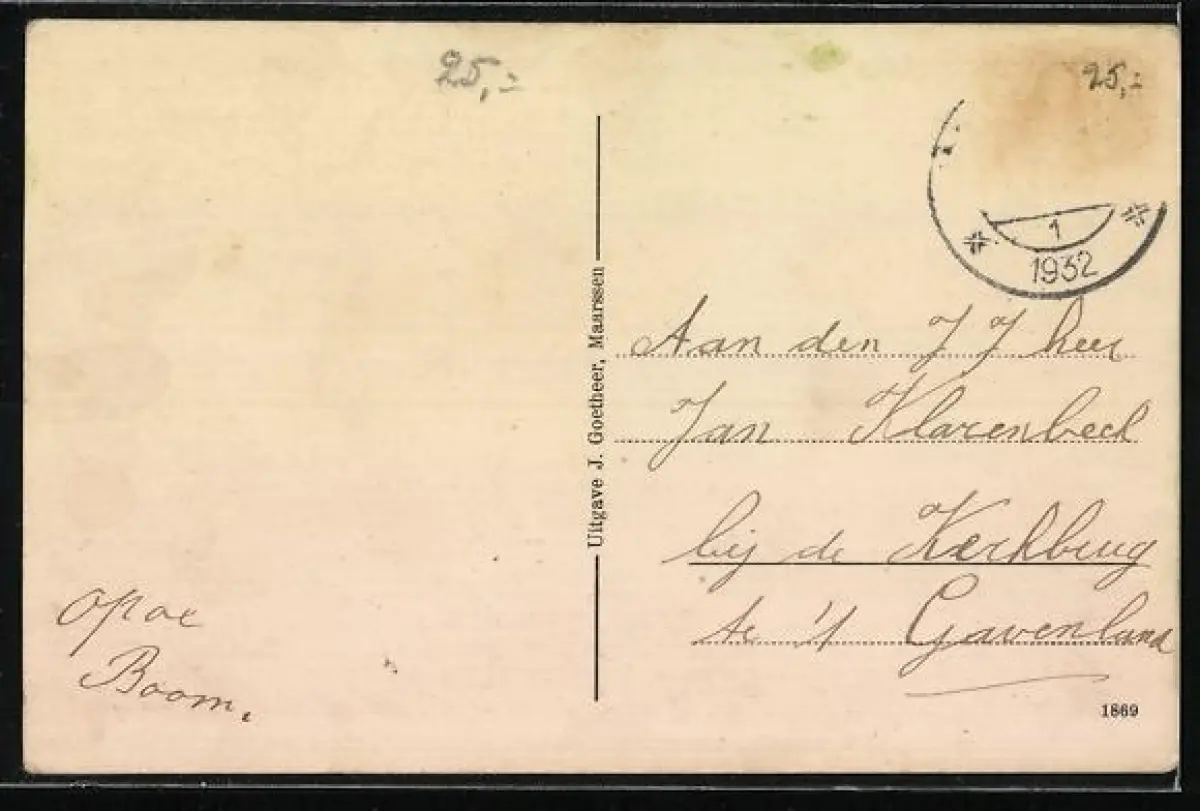 25,-
25,-
1
1932
Uitgave J. Goetheer, Maarssen
Aan den J J heer
Jan Klarenbeek
bij de Kerkbrug
te 's Gavenland
opoe
Boom.
1869